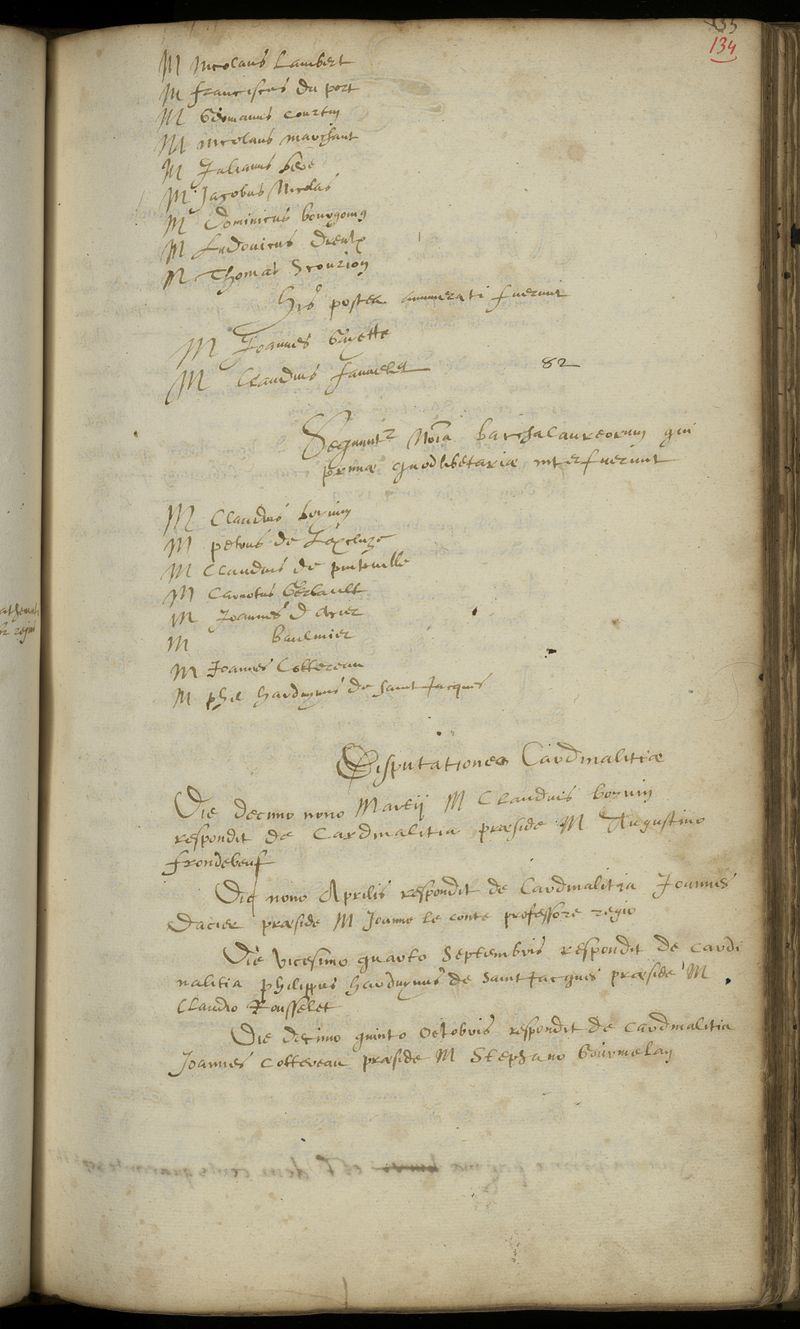 134
M Nicolaus Lambert
M franciscus du port
M Germanus Courtin
M Nicolaus marchant
M Julianus
M Jacobus Nicolas
M Dominicus bourgoing
M Ludovicus
M Thomas
His postea annumerati fuerunt
M Joannes Gayette
M Claudius
82
Sequunt' Noĩa bacchalaureorum qui
primae quodlibetariae interfuerunt
M Claudius boyvin
M petrus de
M Claudius de
M Carnotus Gerbault
M Joannes Dacier
M baulmier
M Joannes Cottereau
M phil harduynus de Saint Jacques
Disputationes Cardinalitiae
Die decimo nono Martij M Claudius boyvin
respondit de Cardinalitia praeside M Augustino
frondebeuf
Die nono Aprilis respondit de Cardinalitia Joannes
Dacier praeside M Joanne le conte professore regio
Die vicesimo quarto Septembris respondit de Cardi
nalitia philippus harduynus de Saint Jacques praeside M
Claudio Rousselet
Die decimo quinto octobris respondit de cardinalitia
Joannes cottereau praeside M Stephano Gourmelen